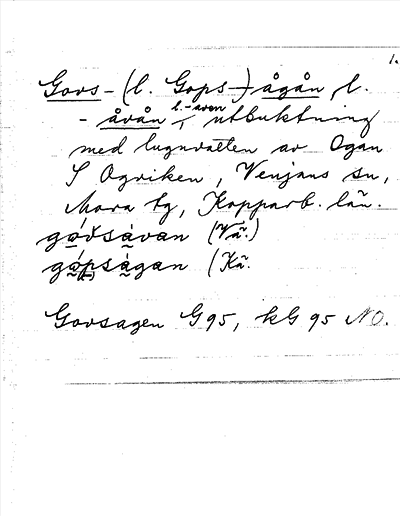 1.
Govs- (l. Gops-) ågån, l.
- åvån l. -aven, utbuktning
med lugnvatten av Ogan
S Ogviken, Venjans sn,
Mora tg, Kopparb. län.
gǫvsavan (Vä.)
gǫpsagan (Kä.
Govsagen G95, kG 95 NO.